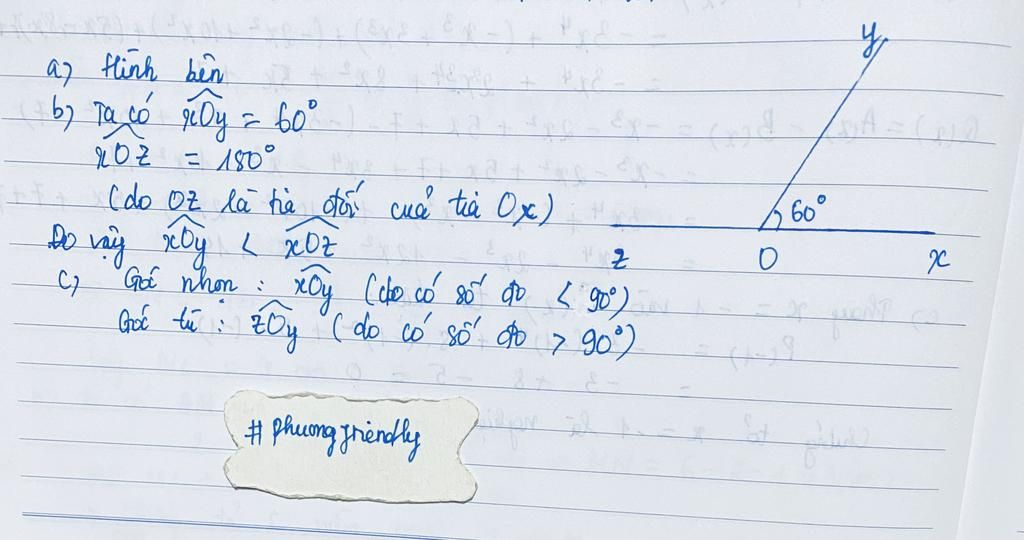 a) Hình bên
b) Ta có xOy = 60°
xOz = 180°
(do Oz là tia đối của tia Ox)
Do vậy xOy < xOz
c) Góc nhọn : xOy (do có số đo < 90°)
Góc tù : zOy (do có số đo > 90°)
y
60°
z O x
# phuongfriendly